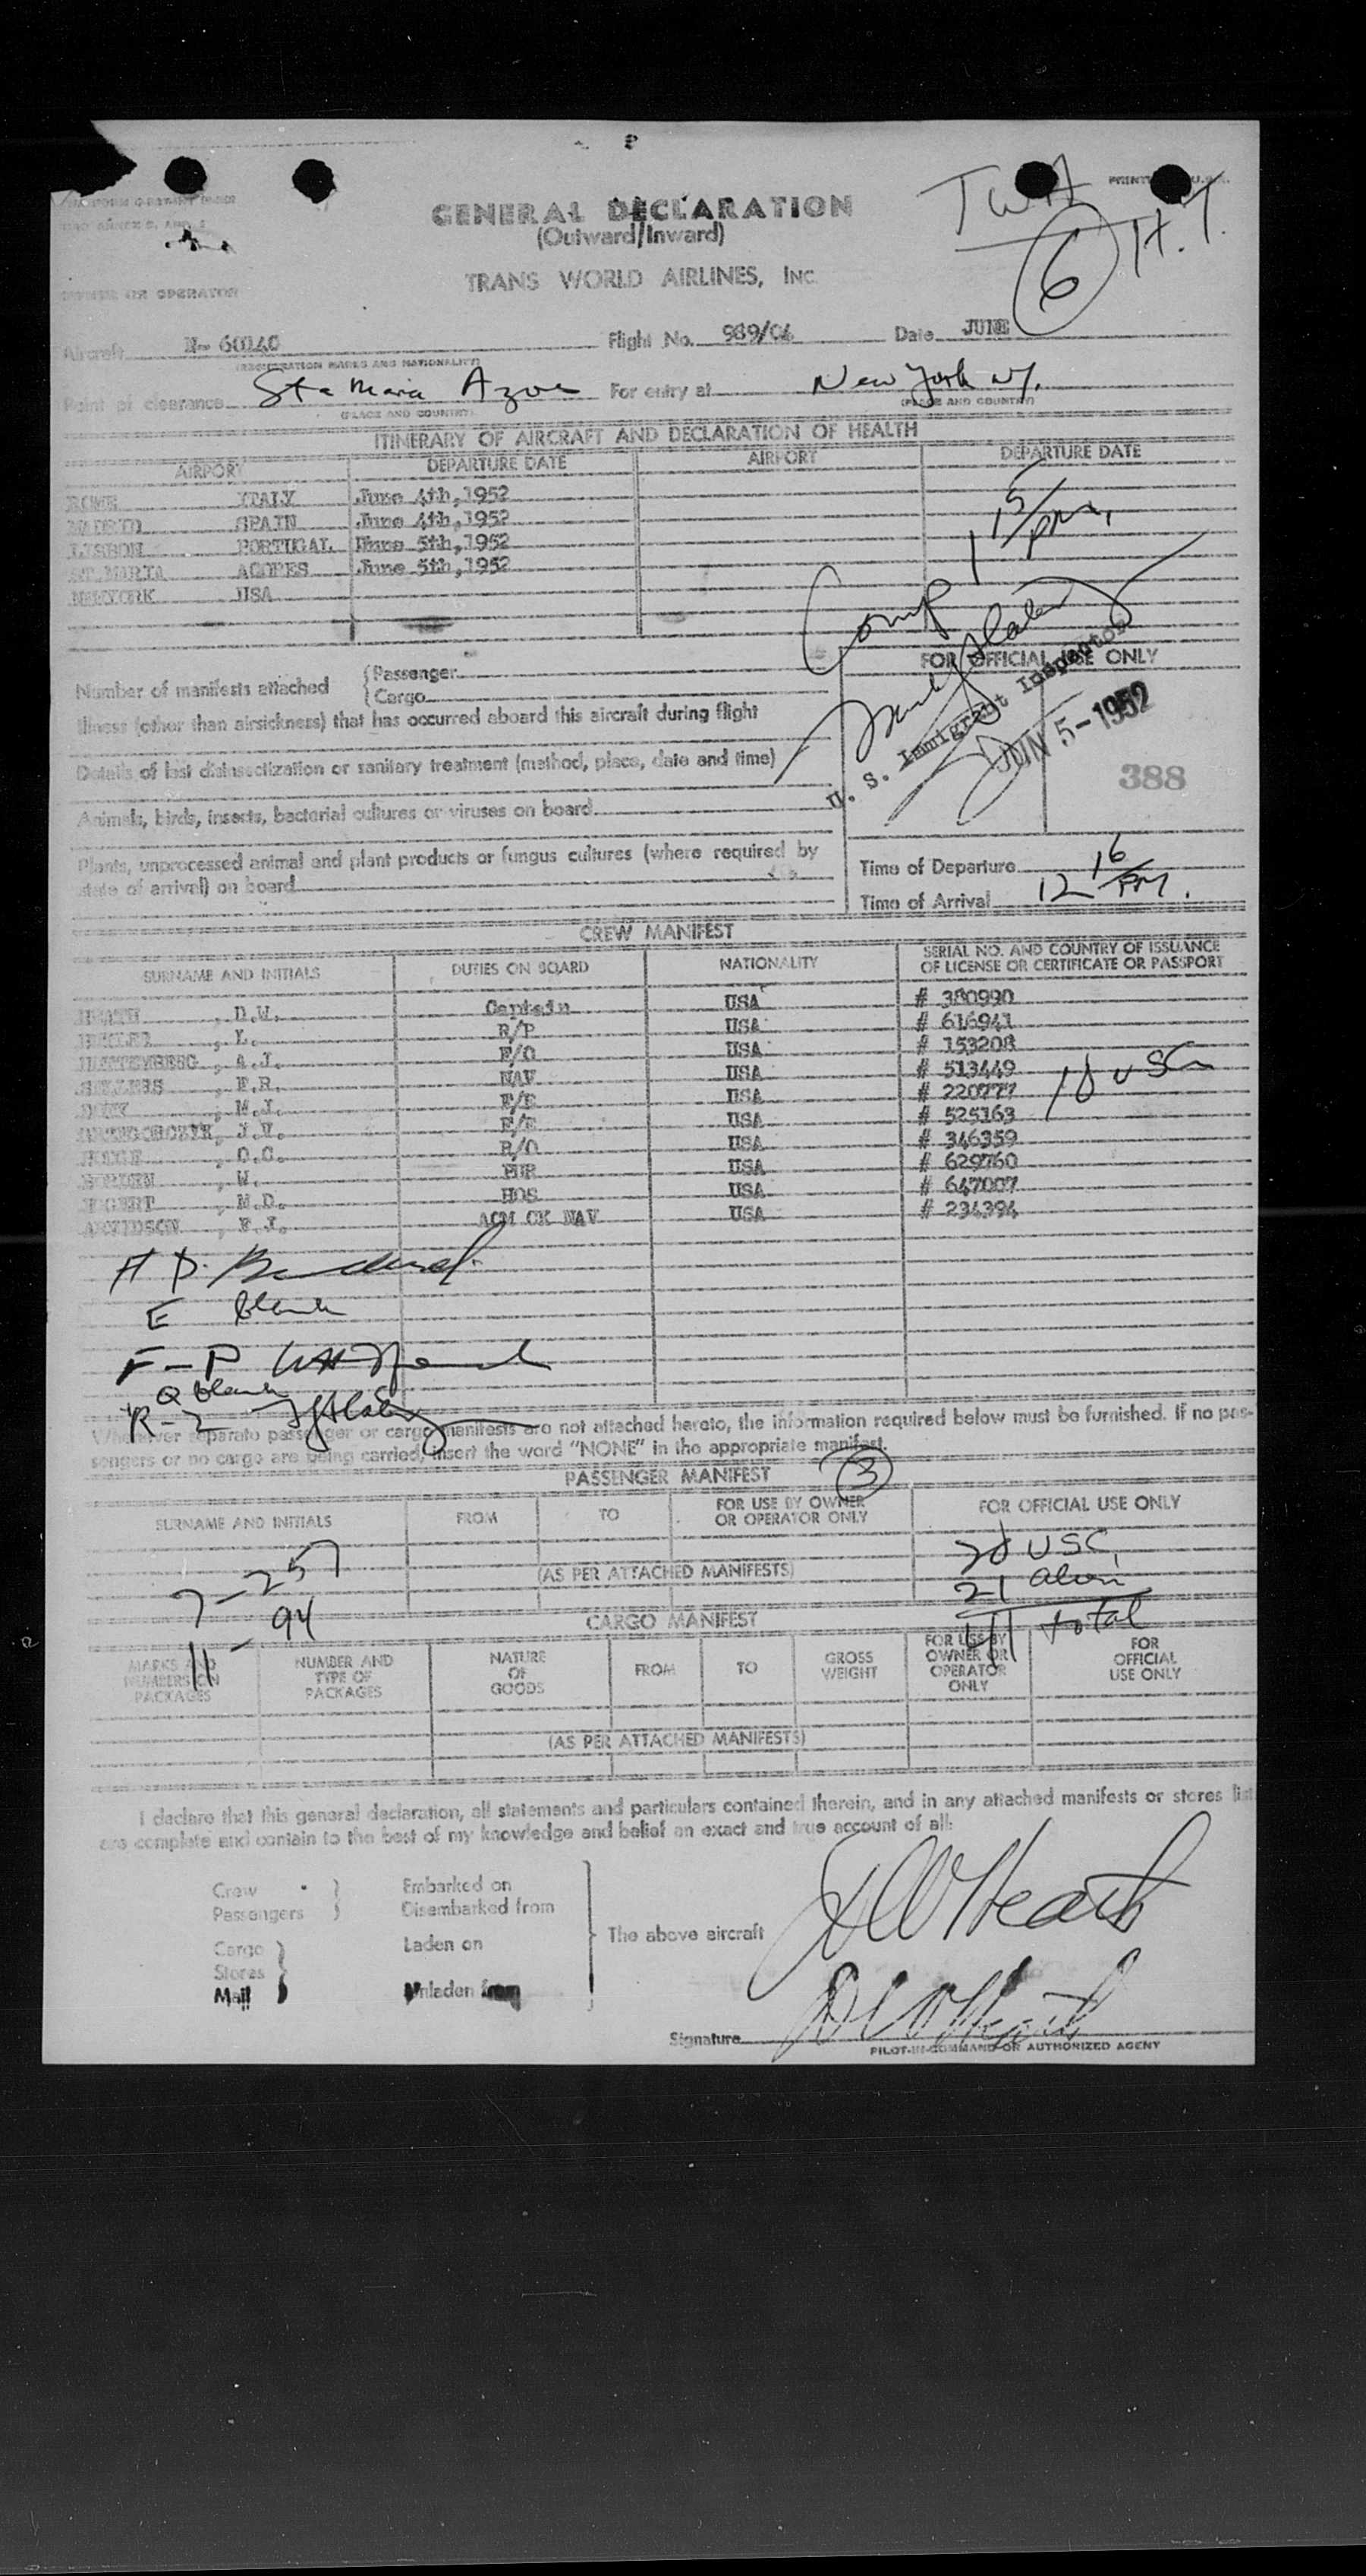 TWA
H.T.
6
GENERAL DECLARATION
(Outward/Inward)
TRANS WORLD AIRLINES, INC.
OWNER OR OPERATOR
Aircraft N- Flight No. Date JUNE
(REGISTRATION MARKS AND NATIONALITY)
Point of clearance Sta Maria For entry at New York NY.
(PLACE AND COUNTRY) (PLACE AND COUNTRY)
ITINERARY OF AIRCRAFT AND DECLARATION OF HEALTH
AIRPORT DEPARTURE DATE AIRPORT DEPARTURE DATE
ROME ITALY June 4th,1952
MADRID SPAIN June 4th,1952
LISBON PORTUGAL June 5th,1952
ST.MARIA June 5th,1952
USA
1 15/pm,
Comp
FOR OFFICIAL USE ONLY
Number of manifests attached { Passenger
{ Cargo
Illness (other than airsickness) that has occurred aboard this aircraft during flight
U. S. Immigrant Inspector
JUN 5-1952
Details of last disinsectization or sanitary treatment (method, place, date and time)
388
Animals, birds, insects, bacterial cultures or viruses on board
Plants, unprocessed animal and plant products or fungus cultures (where required by
state of arrival) on board
Time of Departure
Time of Arrival 12 16/PM.
CREW MANIFEST
SURNAME AND INITIALS DUTIES ON BOARD NATIONALITY SERIAL NO. AND COUNTRY OF ISSUANCE
OF LICENSE OR CERTIFICATE OR PASSPORT
HEATH , D.W. Captain USA # 380990
, L. R/P USA # 616941
, A.J. F/O USA # 153208
, E.R. NAV USA # 513449
, M.J. F/E USA # 220777
, J.V. F/E USA # 525163
, O.C. R/O USA # 346359
, W. PUR USA # 629760
, M.D. HOS USA # 647007
, F.J. ACM CK NAV USA # 234394
10 USC
E Blank
F-P
Q Blank
R-2
Whenever separate passenger or cargo manifests are not attached hereto, the information required below must be furnished. If no pas-
sengers or no cargo are being carried, insert the word "NONE" in the appropriate manifest.
PASSENGER MANIFEST 3
SURNAME AND INITIALS FROM TO FOR USE BY OWNER
OR OPERATOR ONLY FOR OFFICIAL USE ONLY
20 USC
(AS PER ATTACHED MANIFESTS)
21 alien
41 total
7-257
11-94
CARGO MANIFEST
MARKS AND
NUMBERS ON
PACKAGES NUMBER AND
TYPE OF
PACKAGES NATURE
OF
GOODS FROM TO GROSS
WEIGHT FOR USE BY
OWNER OR
OPERATOR
ONLY FOR
OFFICIAL
USE ONLY
(AS PER ATTACHED MANIFESTS)
I declare that this general declaration, all statements and particulars contained therein, and in any attached manifests or stores list
are complete and contain to the best of my knowledge and belief an exact and true account of all:
Crew } Embarked on
Passengers } Disembarked from
The above aircraft
Cargo } Laden on
Stores
Mail Unladen from
DW Heath
Signature DW Heath
PILOT-IN-COMMAND OR AUTHORIZED AGENT